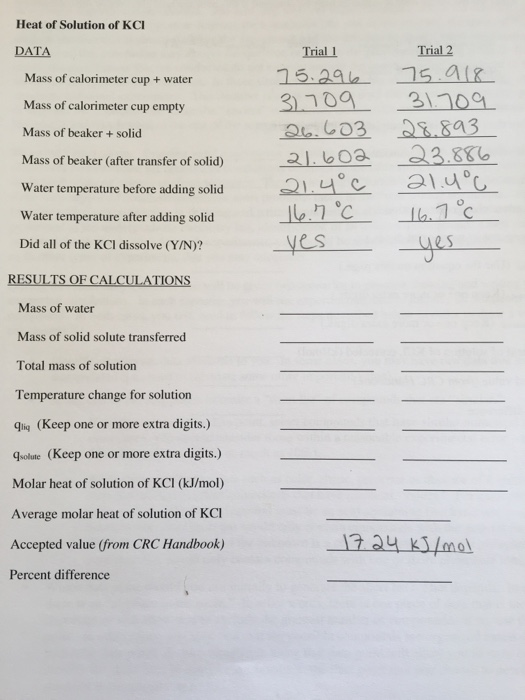 Heat of Solution of KCl
DATA Trial 1 Trial 2
Mass of calorimeter cup + water 75.296 75.918
Mass of calorimeter cup empty 31.709 31.709
Mass of beaker + solid 26.603 28.893
Mass of beaker (after transfer of solid) 21.602 23.886
Water temperature before adding solid 21.4°C 21.4°C
Water temperature after adding solid 16.7°C 16.7°C
Did all of the KCl dissolve (Y/N)? yes yes
RESULTS OF CALCULATIONS
Mass of water
Mass of solid solute transferred
Total mass of solution
Temperature change for solution
qliq (Keep one or more extra digits.)
qsolute (Keep one or more extra digits.)
Molar heat of solution of KCl (kJ/mol)
Average molar heat of solution of KCl
Accepted value (from CRC Handbook) 17.24 kJ/mol
Percent difference